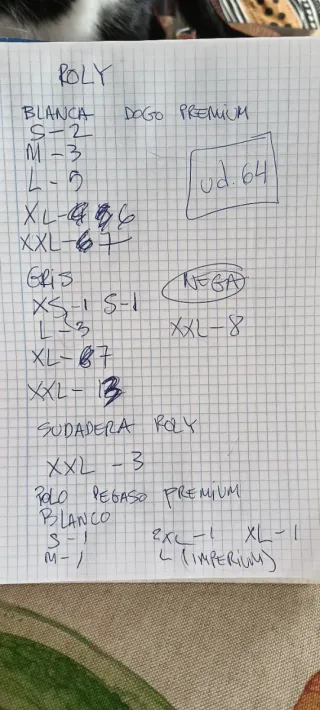 ROLY
BLANCA DOGO PREMIUM
S-2
M-3
L-5
ud. 64
XL-6
XXL-7
GRIS
NEGA
XS-1 S-1
L-3
XXL-8
XL-7
XXL-13
SUDADERA ROLY
XXL-3
POLO PEGASO PREMIUM
BLANCO
S-1 2XL-1 XL-1
M-1 L (IMPERIUM)